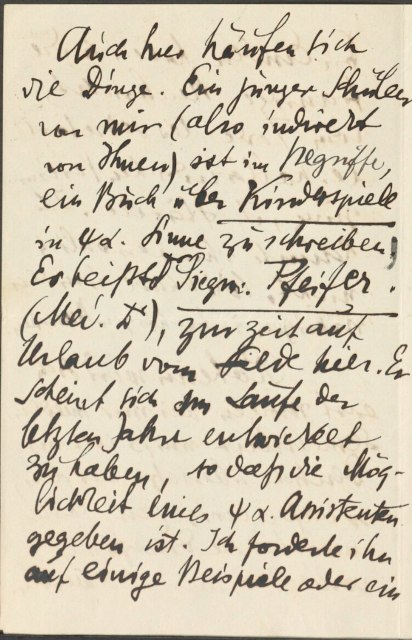 Auch hier häufen sich
die Dinge. Ein junger Schüler
von mir (also indirekt
von Ihnen) ist im Begriffe,
ein Buch über Kinderspiele
in ψα. Sinne zu schreiben;
Er heißt Sigm. Pfeifer.
zur Zeit auf
Urlaub vom Felde hier. Er
scheint sich im Laufe der
letzten Jahre entwickelt
zu haben, so daß die Mög-
lichkeit eines ψα. Assistenten
gegeben ist. Ich forderte ihn
auf einige Beispiele oder ein